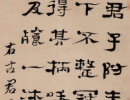 君子防未
下不整冠
得其柄
及一沐
右古君